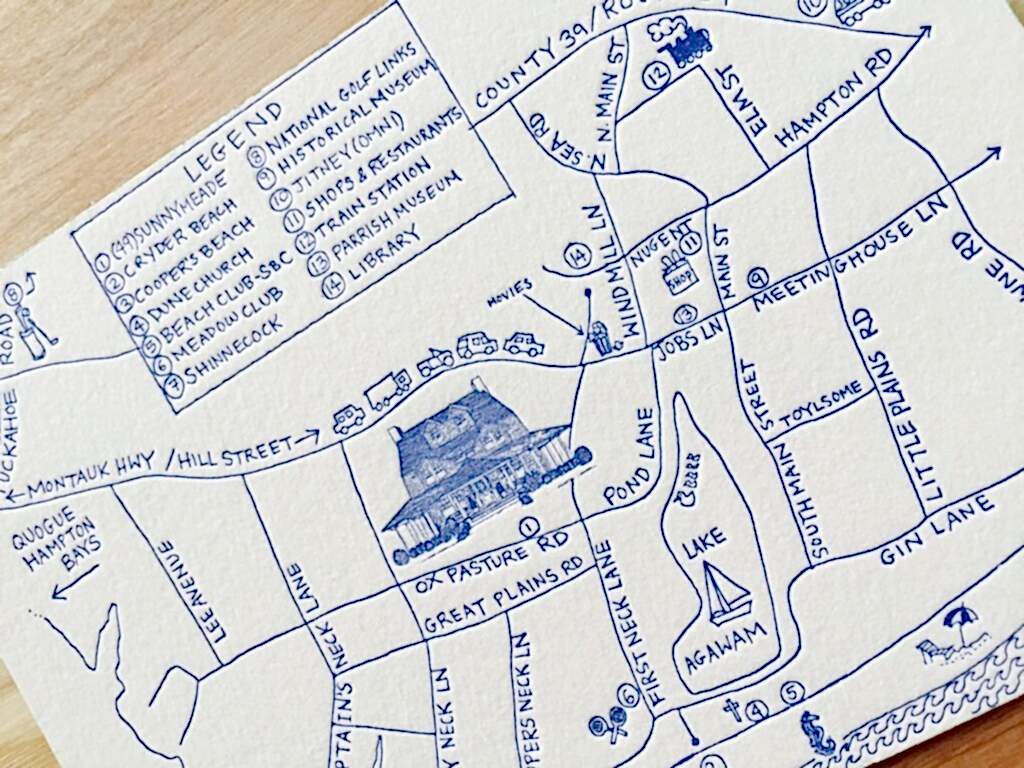 LEGEND
① (49) SUNNYMEADE
② CRYDER BEACH
③ COOPER'S BEACH
④ DUNE CHURCH
⑤ BEACH CLUB-SBC
⑥ MEADOW CLUB
⑦ SHINNECOCK
⑧ NATIONAL GOLF LINKS
⑨ HISTORICAL MUSEUM
⑩ JITNEY (OMNI)
⑪ SHOPS & RESTAURANTS
⑫ TRAIN STATION
⑬ PARRISH MUSEUM
⑭ LIBRARY
COUNTY 39/
⑩
⑫
N. SEA RD
N. MAIN ST
ELM ST
HAMPTON RD
⑧
ROAD
⑭
WINDMILL LN
NUGENT
⑪
SHOP
MAIN ST
⑨
MEETINGHOUSE LN
MOVIES
JOBS LN
←MONTAUK HWY /HILL STREET→
QUOGUE
HAMPTON
BAYS
LEE AVENUE
LANE
①
OX PASTURE RD
GREAT PLAINS RD
POND LANE
LAKE
AGAWAM
STREET
SOUTH MAIN
TOYLSOME
LITTLE PLAINS RD
GIN LANE
FIRST NECK LANE
NECK
NECK LN
NECK LN
⑥
④
⑤